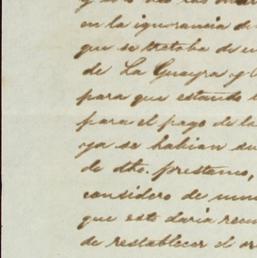 en la ignorancia de
que se trataba de
de La Guayra y
para que estando
para el pago de la
ya se habian
de dho. prestamo,
considero de
que este daria
de restablecer el or